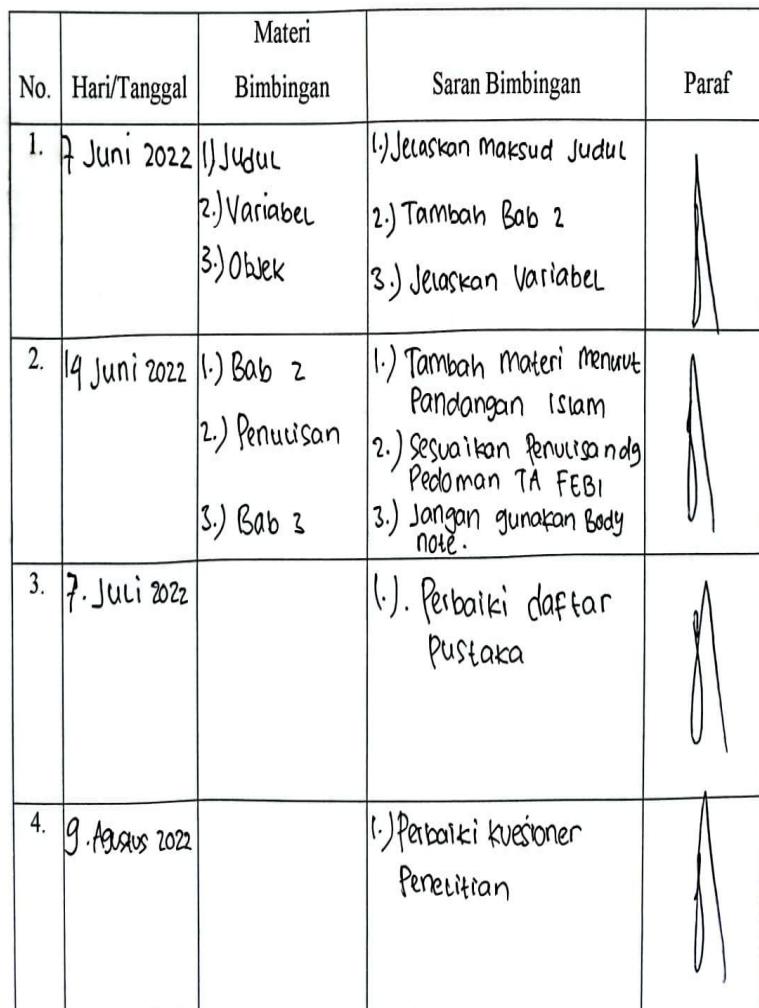 No. Hari/Tanggal Materi Bimbingan Saran Bimbingan Paraf
1. 7 Juni 2022 1) Judul 1.) Jelaskan Maksud Judul
2.) Variabel 2.) Tambah Bab 2
3.) Objek 3.) Jelaskan Variabel
2. 19 Juni 2022 1.) Bab 2 1.) Tambah Materi Menurut
Pandangan Islam
2.) Penulisan 2.) Sesuaikan Penulisan dg
Pedoman TA FEBI
3.) Bab 3 3.) Jangan gunakan Body
note.
3. 7. Juli 2022 1.). Perbaiki daftar
Pustaka
4. 9. Agustus 2022 1.) Perbaiki kuesioner
Penelitian